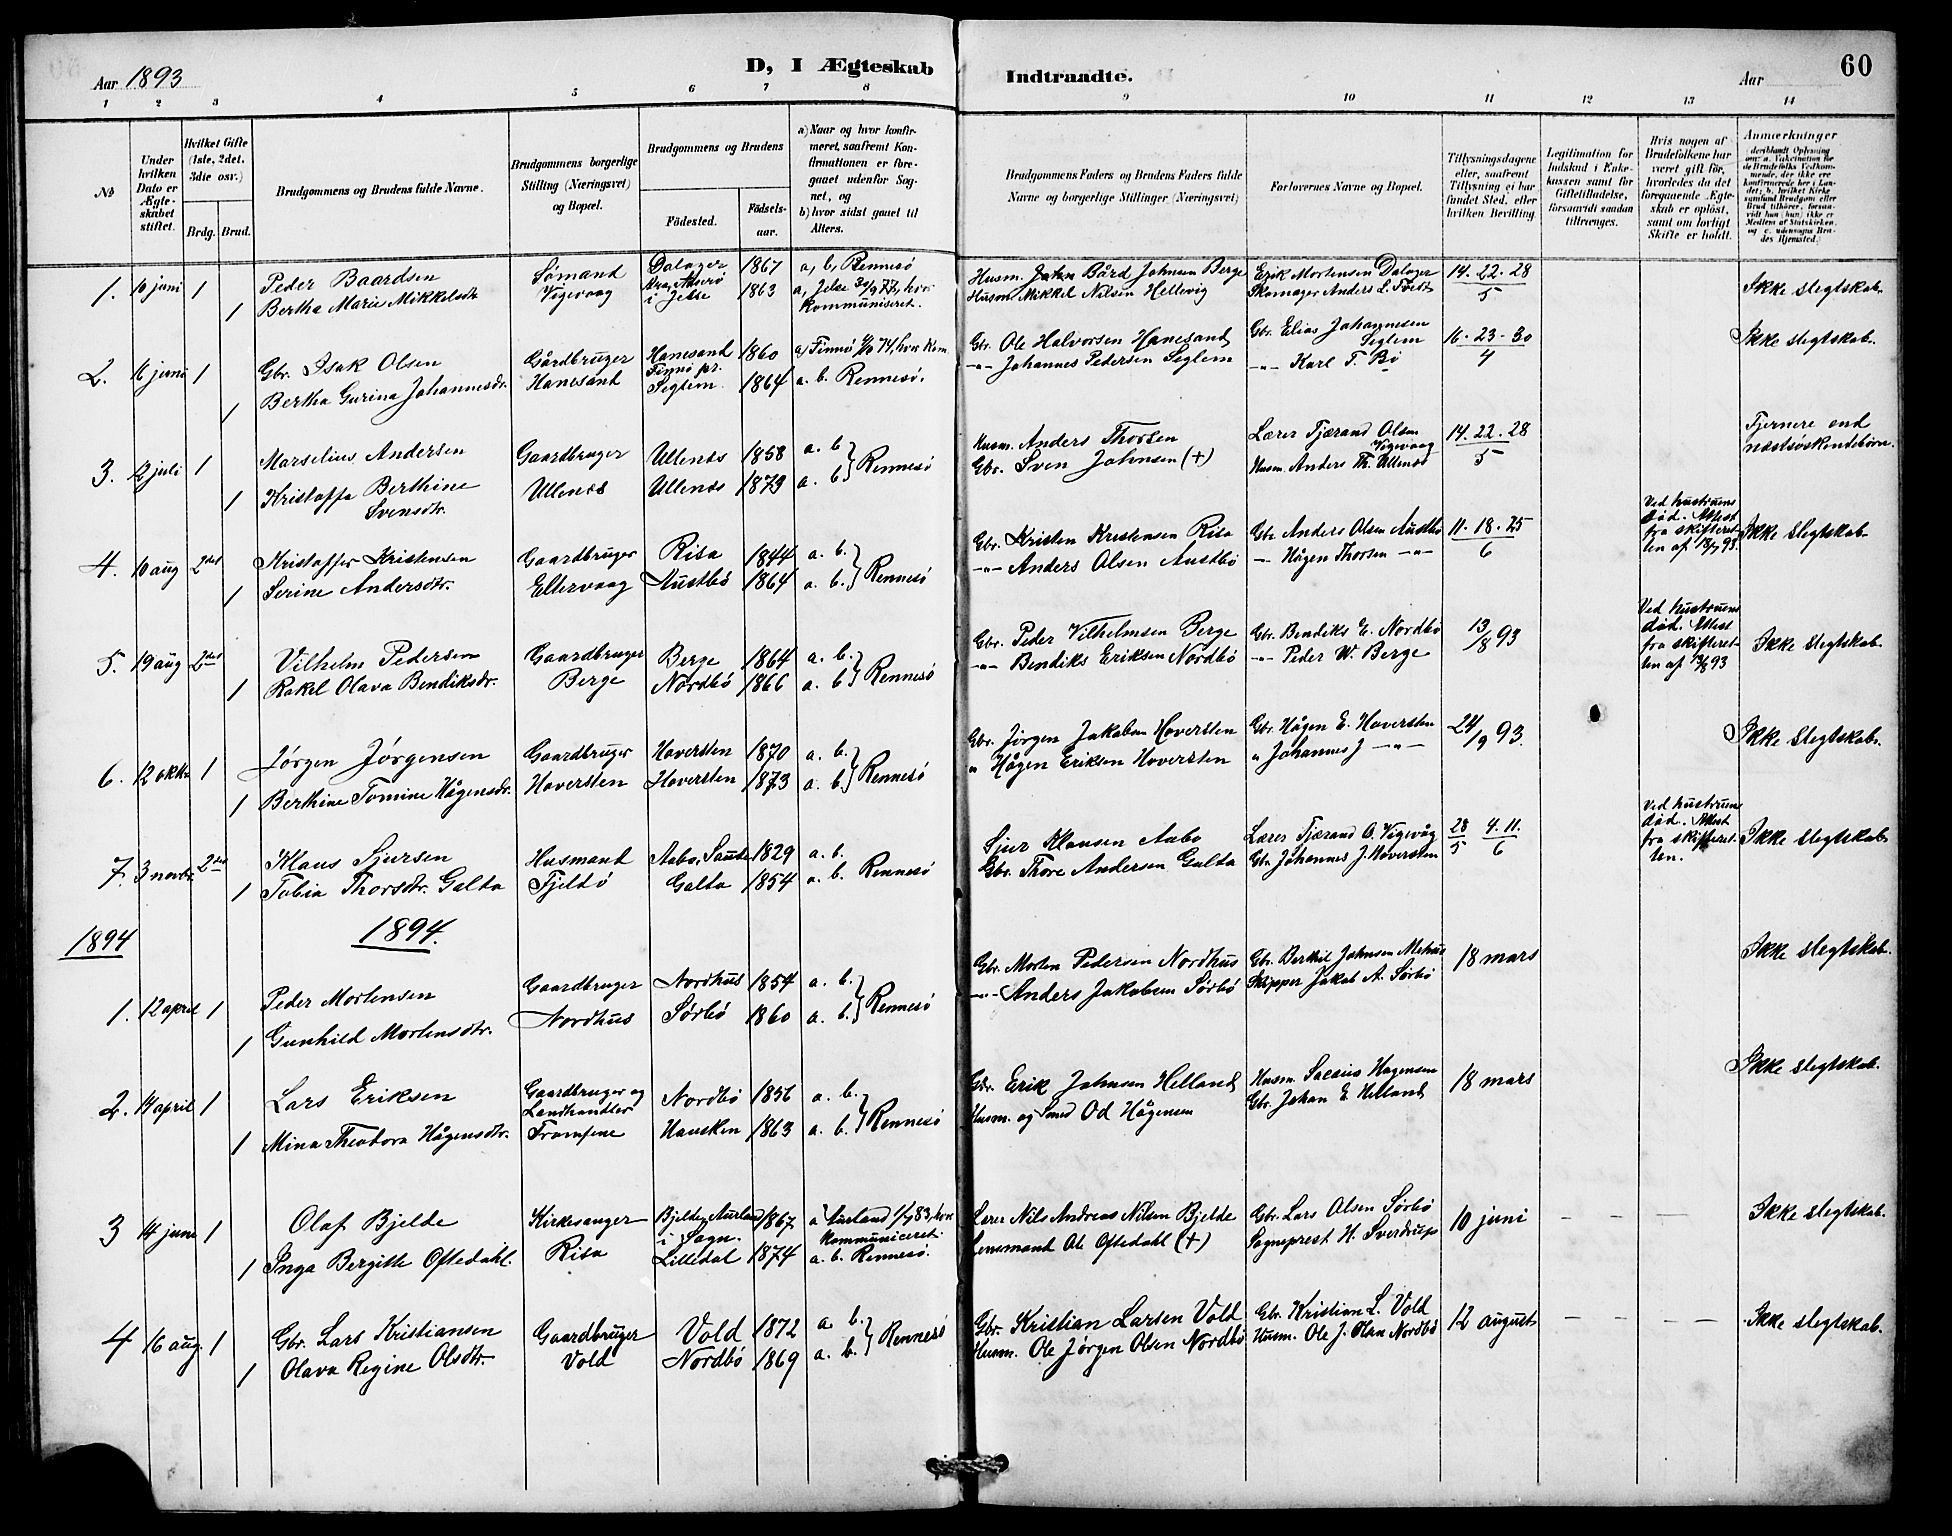 Aar 1893
D, I Ægteskab
Indtraadte.
Aar
60
1 2 3 4 5 6 7 8 9 10 11 12 13 14
No
Under hvilken Dato er Ægteskabet stiftet.
Hvilket Gifte (1ste, 2det, 3die osv.)
Brdg. Brud.
Brudgommens og Brudens fulde Navne.
Brudgommens borgerlige Stilling (Næringsvei) og Bopæl.
Brudgommens og Brudens
Fødested.
Fødselsaar.
a) Naar og hvor konfirmeret, saafremt Konfirmationen er foregaaet udenfor Sognet, og
b) hvor sidst gaaet til Alters.
Brudgommens Faders og Brudens Faders fulde Navne og borgerlige Stillinger (Næringsvei)
Forlovernes Navne og Bopæl.
Tillysningsdagene eller, saafremt Tillysning ei har fundet Sted, efter hvilken Bevilling.
Legitimation for Indskud i Enkekassen samt for Giftetilladelse, forsaavidt saadan tiltrænges.
Hvis nogen af Brudefolkene har været gift før, hvorledes da det foregaaende Ægteskab er opløst, samt om lovligt Skifte er holdt.
Anmærkninger
1. 10 juni 1 Peder Baardsen Sømand Dalager 1867 a, b, Rennesø Husm. Bård Johnsen Berge Erik Mortensen Dalager 14. 22. 28 Ikke slegtskab.
1 Bertha Marie Mikkelsdtr Vigevaag i Jelse 1863 a, Jelse 30/9 77, hvor kommuniseret. Husm. Mikkel Nilsen Hellevig Skomager Anders L. Tvedt 5
2. 16 juni 1 Gbr. Isak Olsen Gårdbruger Hanesand Finnø pr. 1860 a, Finnø 74, hvor kom. Gbr. Ole Halvorsen Hanesand Gbr. Elias Johannesen Seglem 16-23-30 Ikke slegtskab.
1 Bertha Gurina Johannesdr. Hanesand Seglem 1864 a. b. Rennesø. -"- Johannes Pedersen Seglem -"- Karl T. Bø 4
3. 12 juli 1 Marselius Andersen Gaardbruger Ullenes 1858 a. b Husm. Anders Thorsen Lærer Tjærand Olsen Vigevaag 14. 22. 28 Fjernere end næstsøskendebørn.
1 Kristoffa Berthine Svensdtr. Ullenes Ullenes 1873 a. b } Rennesø Gbr. Sven Johnsen (+) Husm. Anders Th. Ullenes 5
4. 10 aug 2det Kristoffer Kristensen Gaardbruger Risa 1844 a. b. Gbr. Kristen Kristensen Risa Gbr. Anders Olsen Austbø 11. 18. 25 Ved hustruens død. Attest fra skifteretten af 12/7 93. Ikke slegtskab.
1 Serine Andersdtr. Eltervaag Austbø 1864 a. b. } Rennesø -"- Anders Olsen Austbø -"- Hågen Thorsen -"- 6
5. 19 aug 2det Vilhelm Pedersen Gaardbruger Berge 1864 a. b. Gbr. Peder Vilhelmsen Berge Gbr. Bendiks E. Nordbø 13/8 93 Ved hustruens død. Attest fra skifteretten af 12/8 93 Ikke slegtskab.
1 Rakel Olava Bendiksdr. Berge Nordbø 1866 a. b } Rennesø -"- Bendiks Eriksen Nordbø -"- Peder W. Berge
6. 12 oktbr 1 Jørgen Jørgensen Gaardbruger Hoversten 1870 a. b. Gbr. Jørgen Jakobsen Hoversten Gbr. Hågen E. Hoversten 24/9 93. Ikke slegtskab.
1 Berthine Tomine Hågensdr. Hoversten Hoversten 1873 a. b. } Rennesø " Hågen Eriksen Hoversten " Johannes J -"-
7. 3 novbr. 2det Klaus Sjursen Husmand Aabo, Saude 1829 a. b. Sjur Klausen Aabo Lærer Tjærand O. Vigevåg 28/5 4. 11./6 Ved hustruens død. Attest fra skifteretten. Ikke slegtskab
1 Tobia Thorsdtr. Galta Fjeldø Galta 1854 a. b. Rennesø Gbr. Thore Andersen Galta Gbr. Johannes J. Hoversten
1894 1894.
1. 12 april 1 Peder Mortensen Gaardbruger Nordhus 1854 a. b. Gbr. Morten Pedersen Nordhus Gbr. Berthil Johnsen Mehus 18 mars Ikke slegtskab.
1 Gunhild Mortensdtr. Nordhus Sørbø 1860 a. b. } Rennesø -"- Anders Jakobsen Sørbø Skipper Jakob A. Sørbø
2. 14 april 1 Lars Eriksen Gaardbruger og Landhandler Nordbø 1856 a. b. Gbr. Erik Johnsen Helland Husm. Hagensen 18 mars Ikke slegtskab.
1 Mina Theodora Hågensdtr. Hausken 1863 a. b. } Rennesø Husm. og Smed Od Hågensen Gbr. Johan E Helland
3 14 juni 1 Olaf Bjelde Kirkesanger Bjelde, Aurland i Sogn. 1867 a Aurland 1/7 83, hvor kommuniceret. Lærer Nils Andreas Nilsen Bjelde Gbr. Lars Olsen Sørbø 10 juni — — — Ikke slegtskab.
1 Inga Bergitte Oftedahl. Risa Lilledal 1874 a. b. Rennesø. Lensmand Ole Oftedahl (+) Sogneprest H. Sverdrup
4 16 aug. 1 Gbr. Lars Kristiansen Gaardbruger Vold 1872 a b. Gbr. Kristian Larsen Vold Gbr. Kristian L. Vold 12 august — — — — Ikke slegtskab.
1 Olava Regine Olsdtr. Vold Nordbø 1869 a. b. } Rennesø Husm. Ole Jørgen Olsen Nordbø Husm. Ole J. Olsen Nordbø